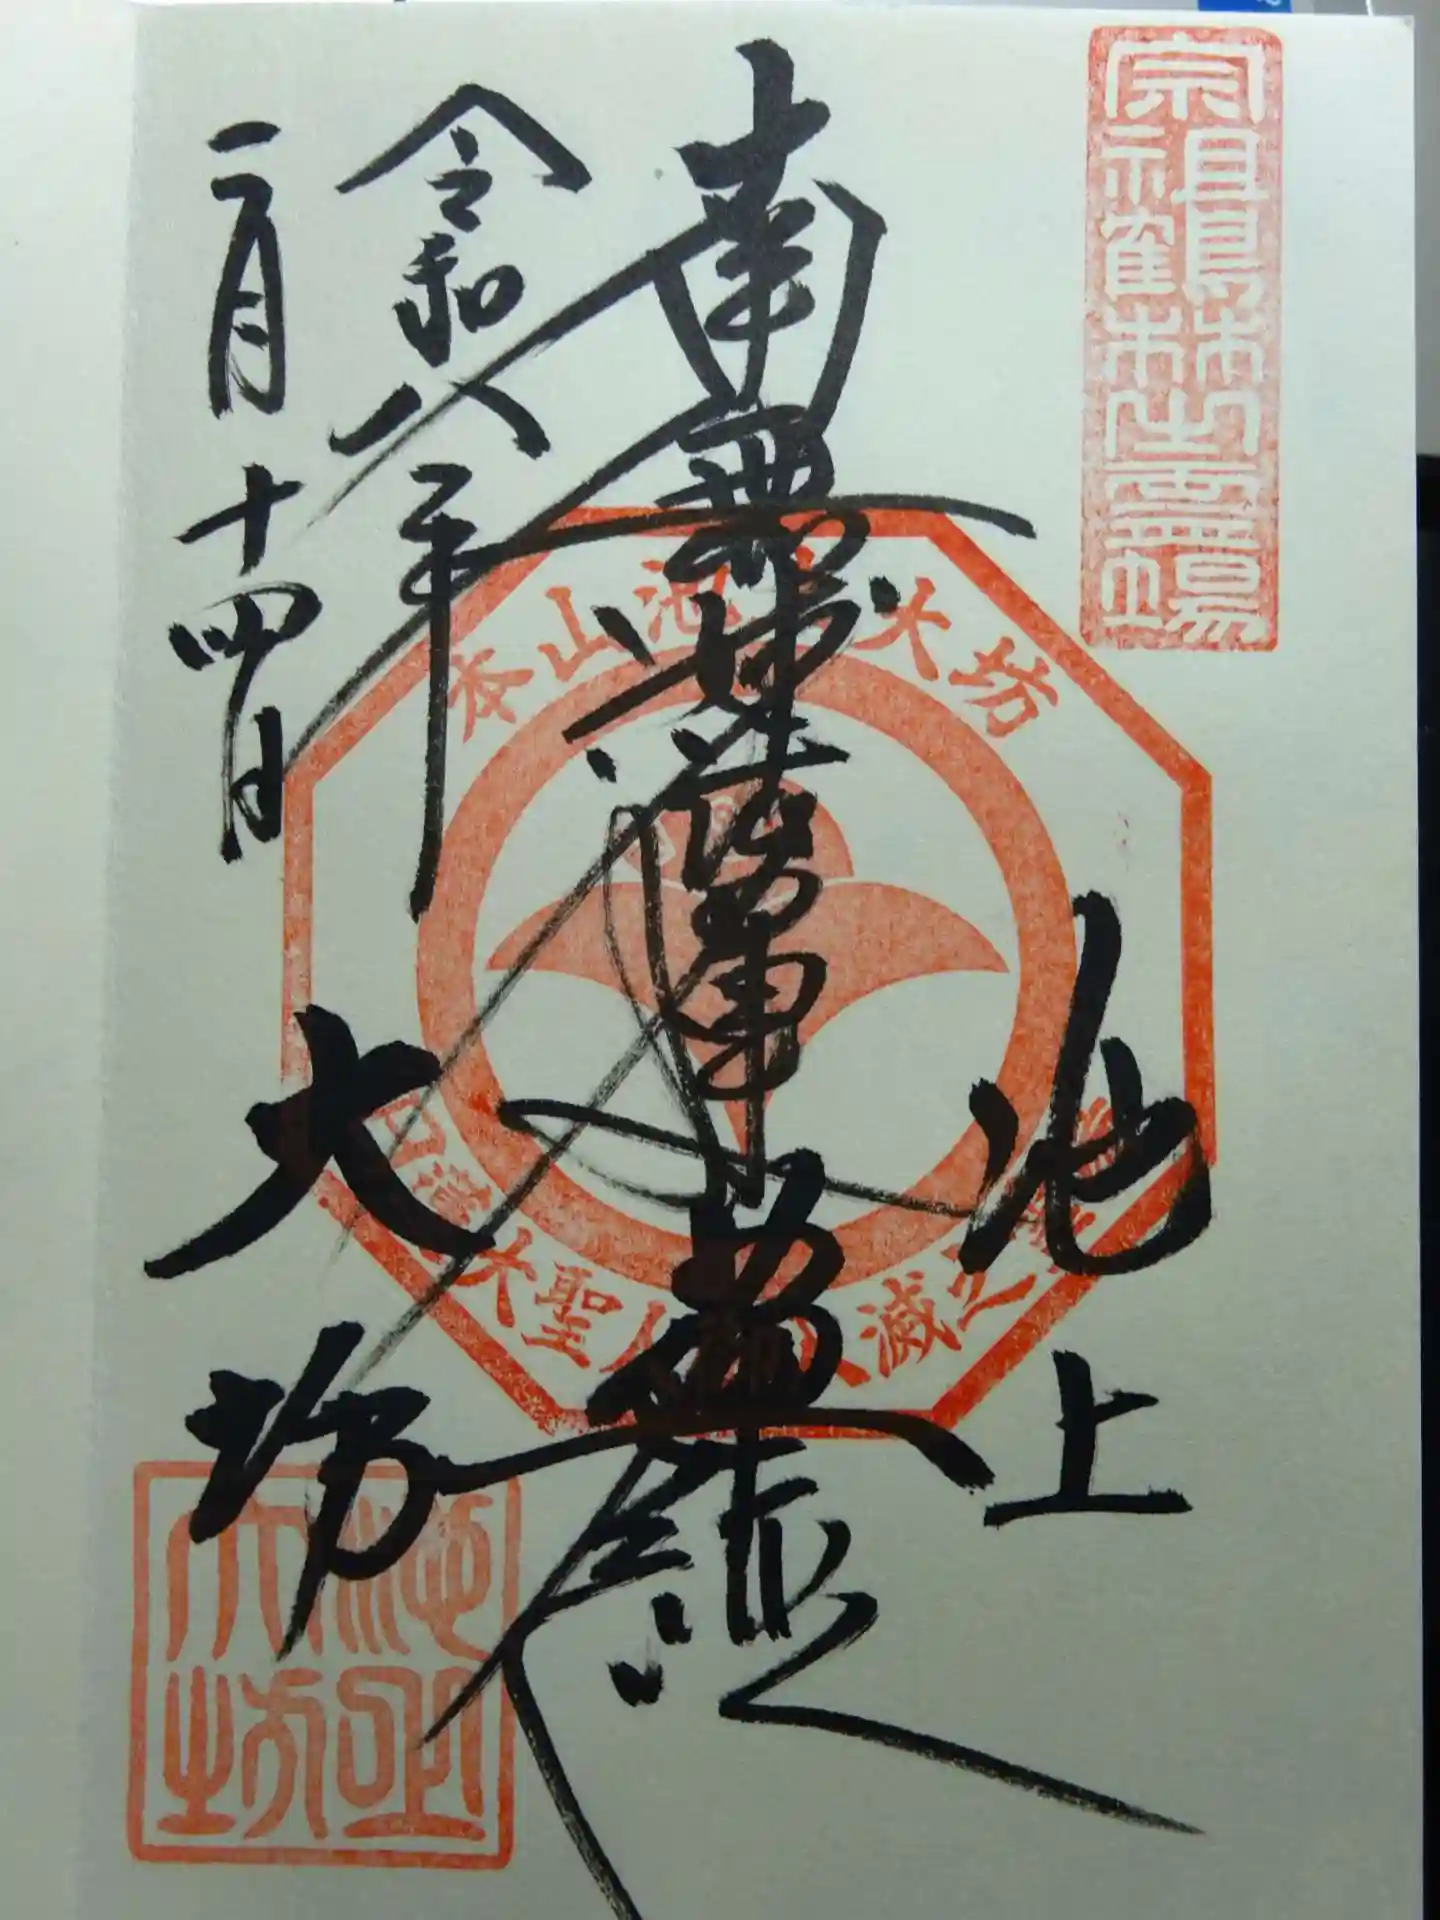 宗祖鶴林之霊場
南無妙法蓮華経
池上
令和八年
二月十四日
大坊
本山池上大坊
日蓮大聖人御入滅之
池上大坊